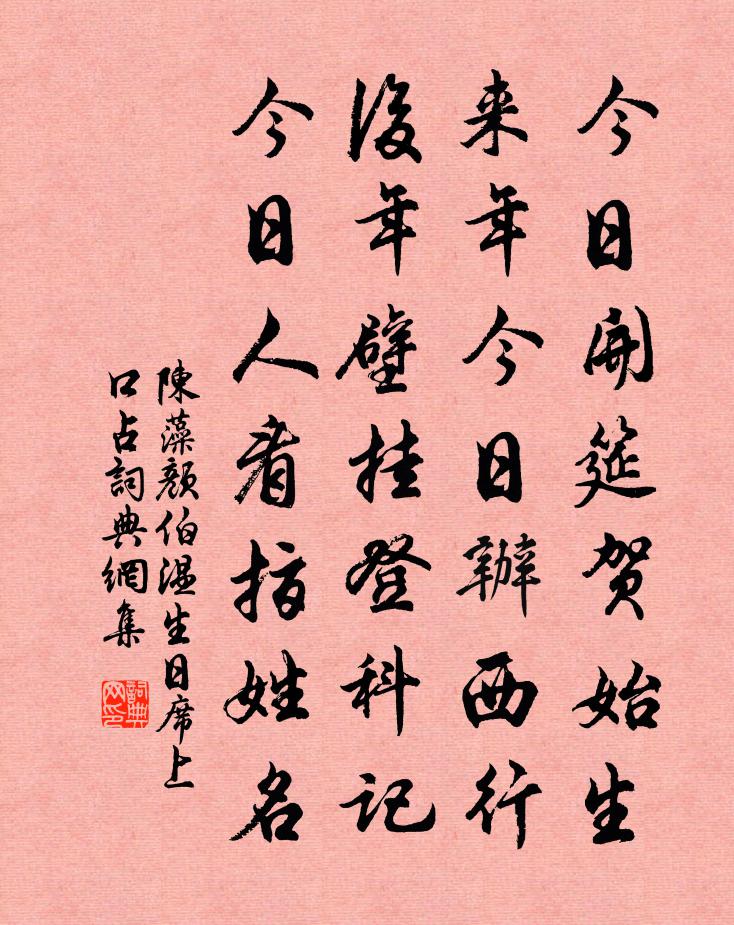 今日開筵贺始生
来年今日辦西行
後年壁挂登科记
今日人看指姓名
陳藻顏伯温生日席上
口占詞典網集
詞典网印